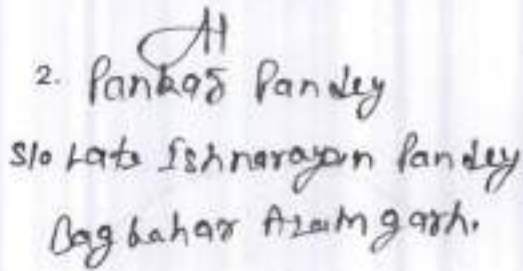 2. Pankaj Pandey
S/o Late Ishnarayan Pandey
Bagbahar Azamgarh.